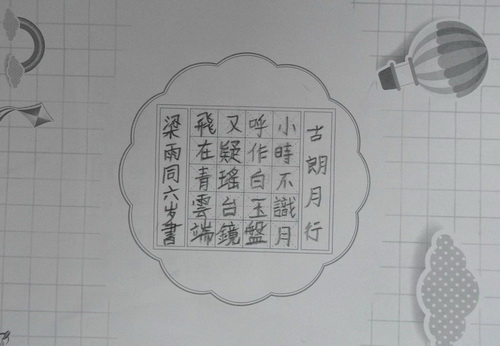 古朗月行
小時不識月
呼作白玉盤
又疑瑤台鏡
飛在青雲端
梁雨同六岁書